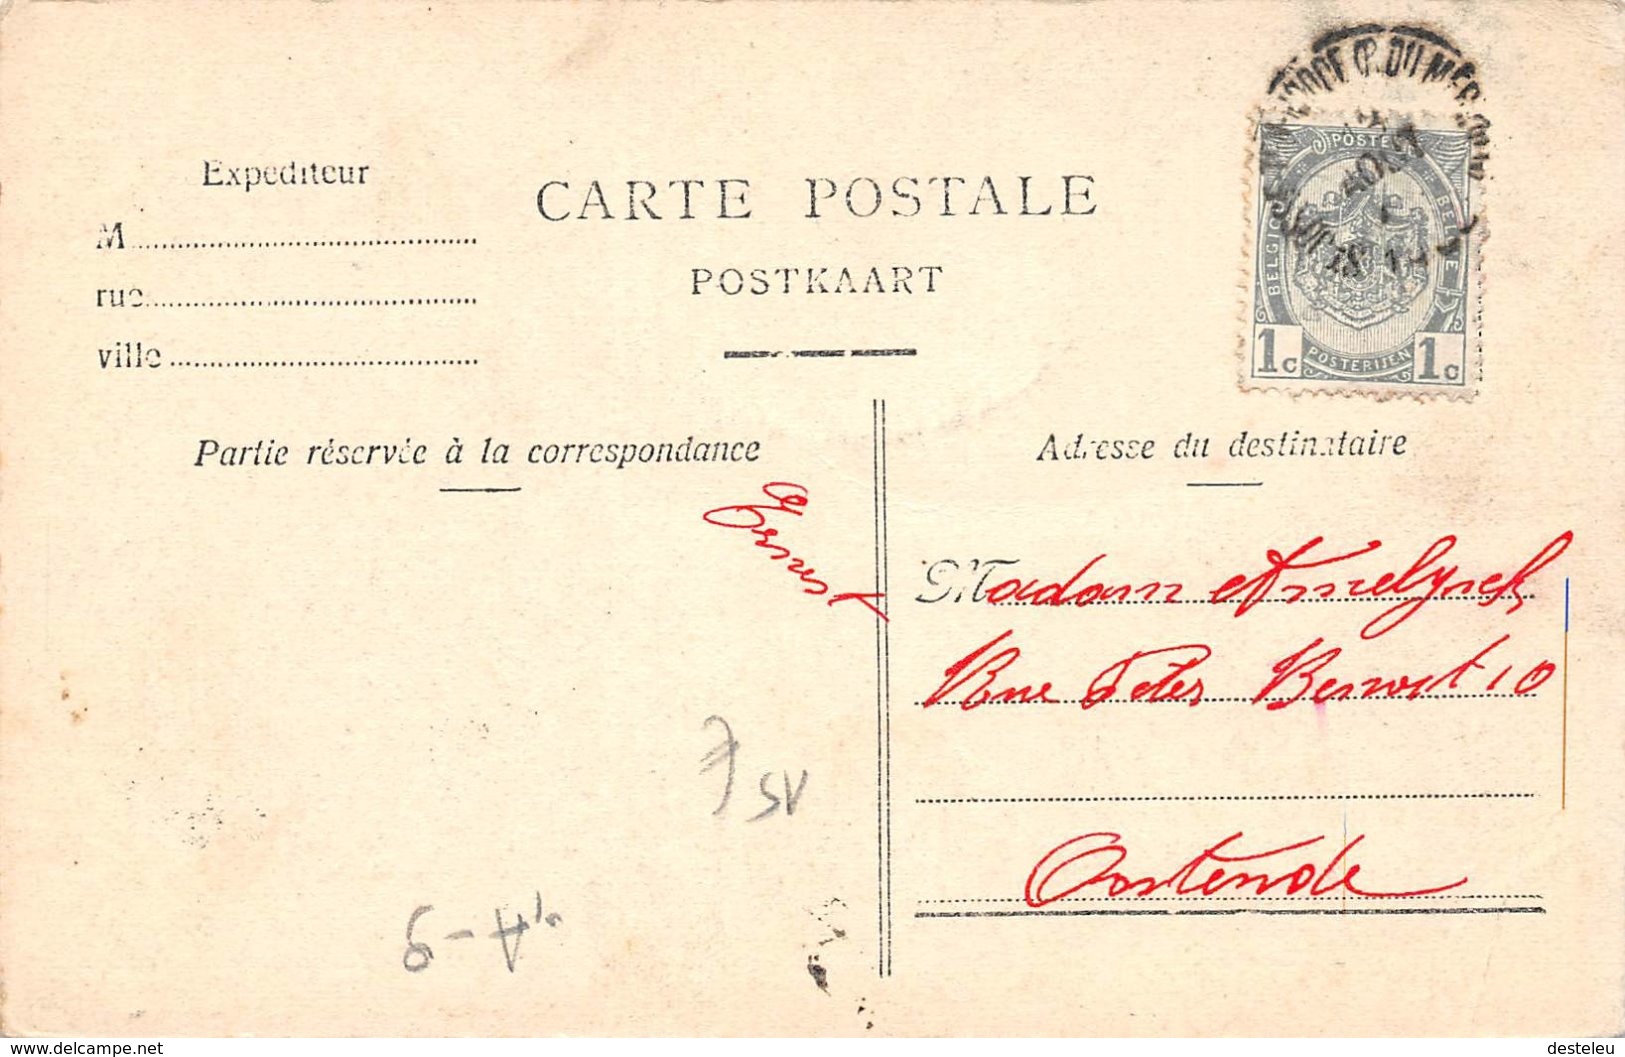 Expediteur
M
rue
ville
CARTE POSTALE
POSTKAART
POSTES
BELGIQUE BELGIE
1c POSTERIJEN 1c
AOUT
Partie réservée à la correspondance
Adresse du destinataire
Ernest
Madam
Rue Peter Benoit 10
Oostende
7 SV
Delcampe.net
desteleu